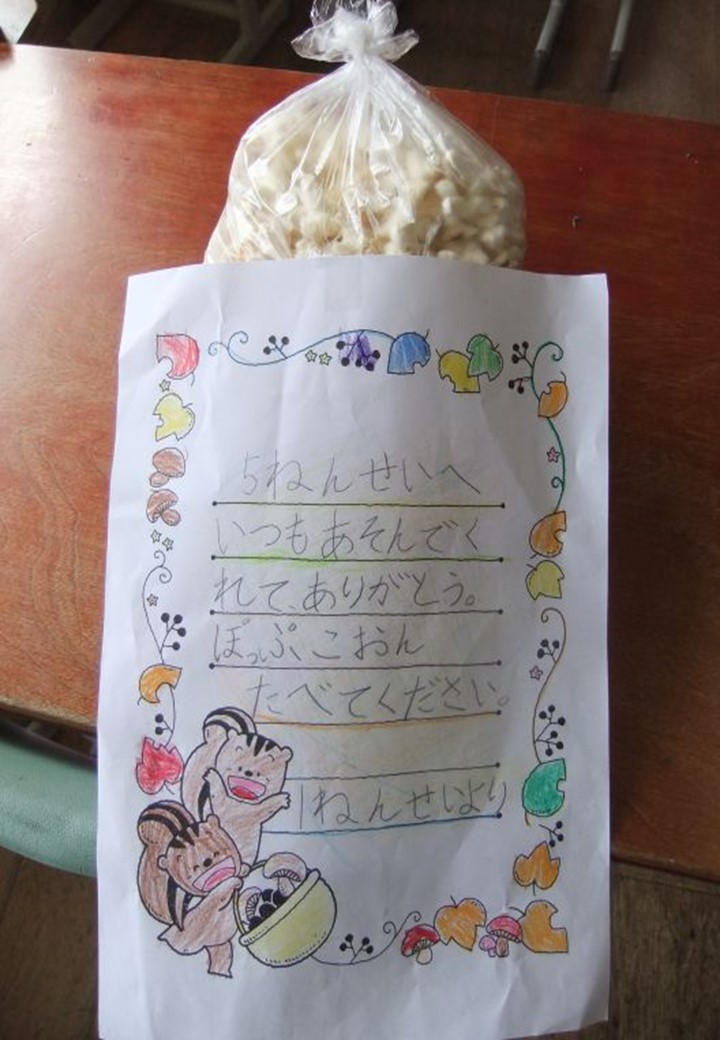 5ねんせいへ
いつもあそんでく
れて、ありがとう。
ぽっぷこおん
たべてください。
1ねんせいより